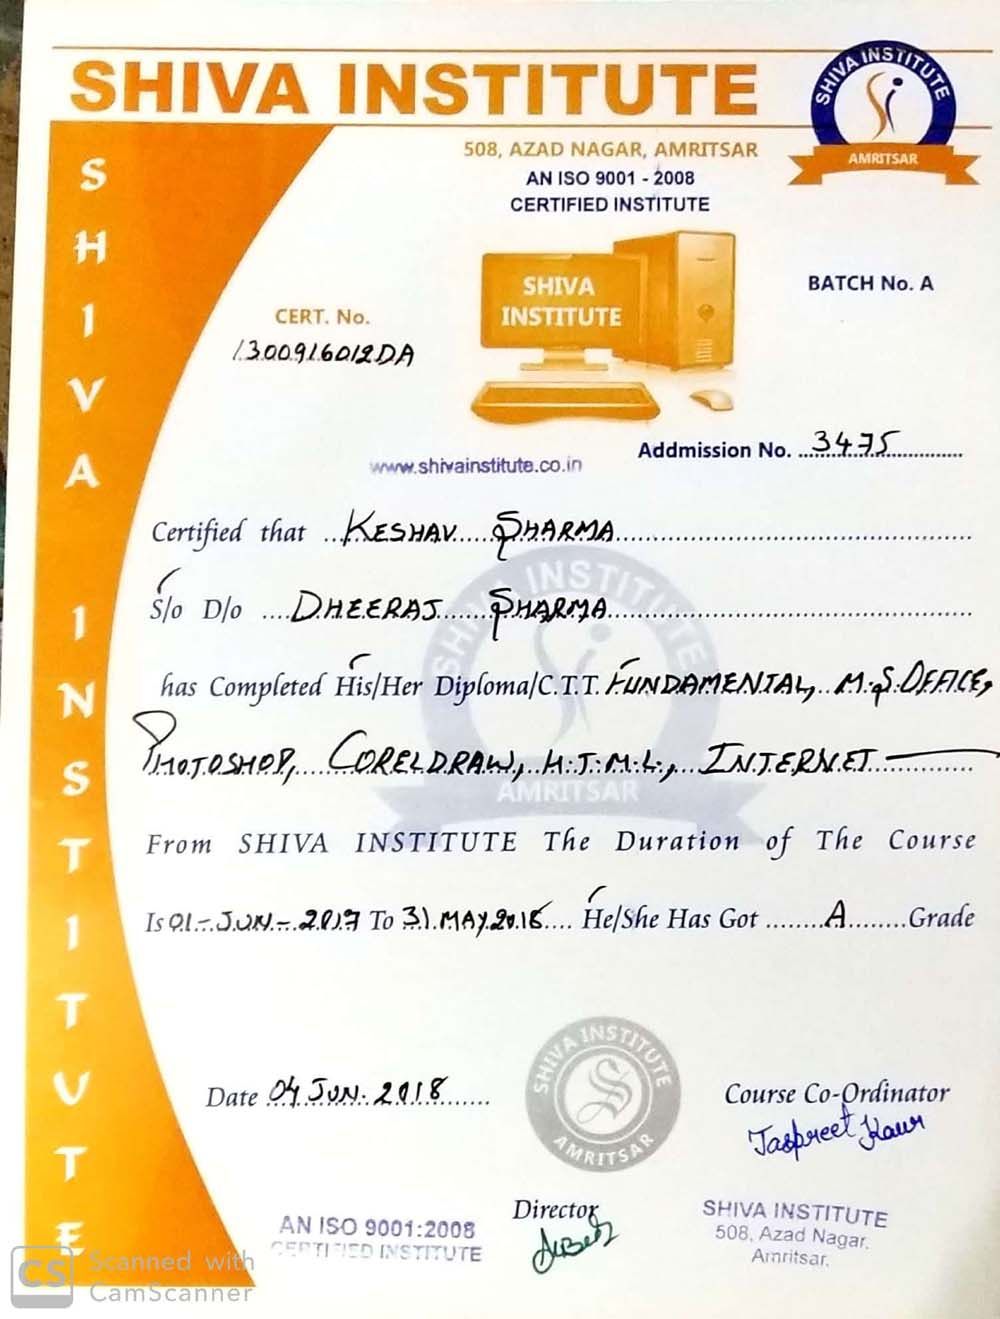 SHIVA INSTITUTE
SHIVA INSTITUTE
AMRITSAR
508, AZAD NAGAR, AMRITSAR
AN ISO 9001 - 2008
CERTIFIED INSTITUTE
SHIVA INSTITUTE
SHIVA
INSTITUTE
BATCH No. A
CERT. No.
1300916012DA
Addmission No. 3475
www.shivainstitute.co.in
Certified that KESHAV SHARMA
S/o D/o DHEERAJ SHARMA
has Completed His/Her Diploma/C.T.T. FUNDAMENTAL, M.S.OFFICE,
PHOTOSHOP, CORELDRAW, H.T.M.L., INTERNET
SHIVA INSTITUTE
AMRITSAR
From SHIVA INSTITUTE The Duration of The Course
Is 01-JUN-2017 To 31.MAY.2018 He/She Has Got A Grade
SHIVA INSTITUTE
AMRITSAR
Date 04 JUN. 2018
Course Co-Ordinator
Jaspreet Kaur
Director
AN ISO 9001:2008
CERTIFIED INSTITUTE
SHIVA INSTITUTE
508, Azad Nagar,
Amritsar.
CS Scanned with
CamScanner